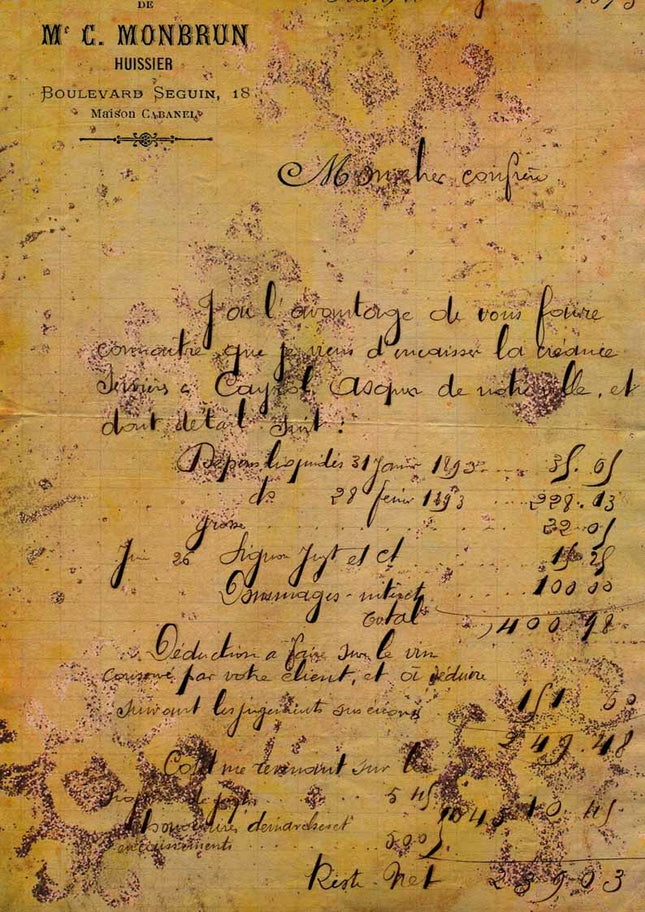 DE
Me C. MONBRUN
HUISSIER
BOULEVARD SEGUIN, 18
Maison CABANEL
Mon cher confrère
J'ai l'avantage de vous faire
connaitre que je viens d'encaisser la créance
Cayrol de notre ville, et
dont détail suit :
31 Janv 1893 35.05
do 28 févier 1893 228.13
grosse 32.05
Juin 26 Signon Jugt et ct 15 25
Dommages-intérêt 100 00
Total 400.98
Déduction a faire sur le vin
conservé par votre client, et à déduire
suivant les jugements sus énoncés 151 50
249.48
Coût me revenant sur la
5 45
honoraires démarches et 10 45 10.45
encaissements 5 00
Reste Net 239.03